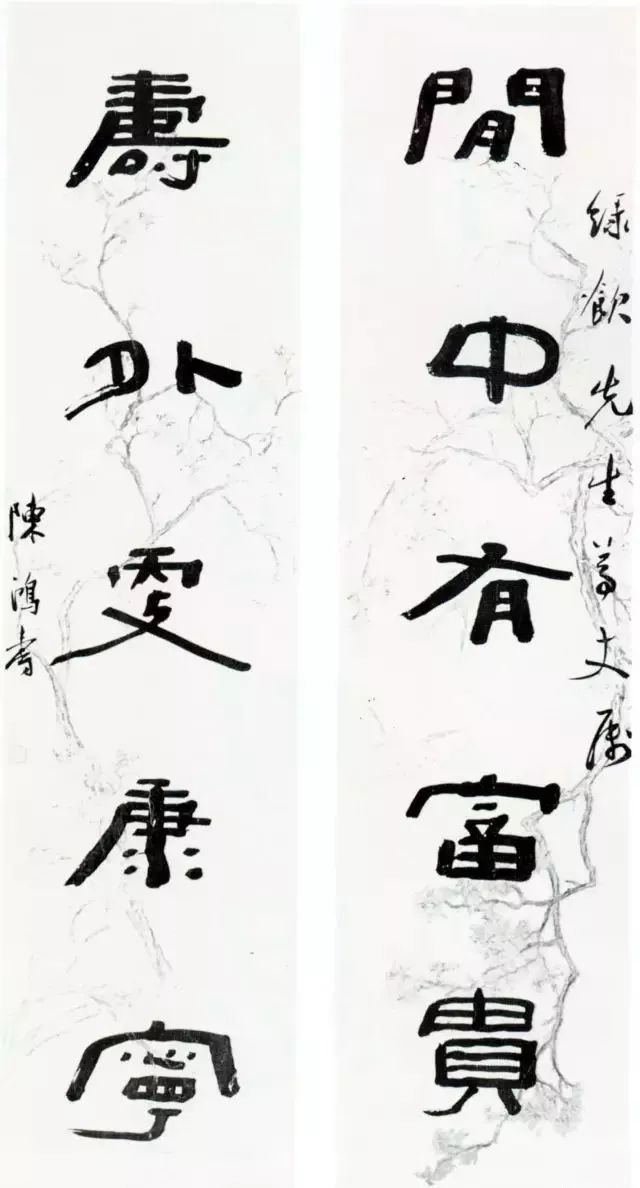 綠飲先生尊丈属
閒中有富貴
壽外更康寧
陳鴻壽